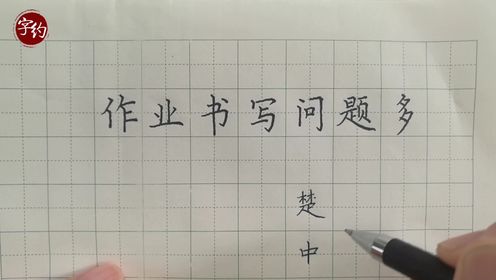 字约
作业书写问题多
楚
中